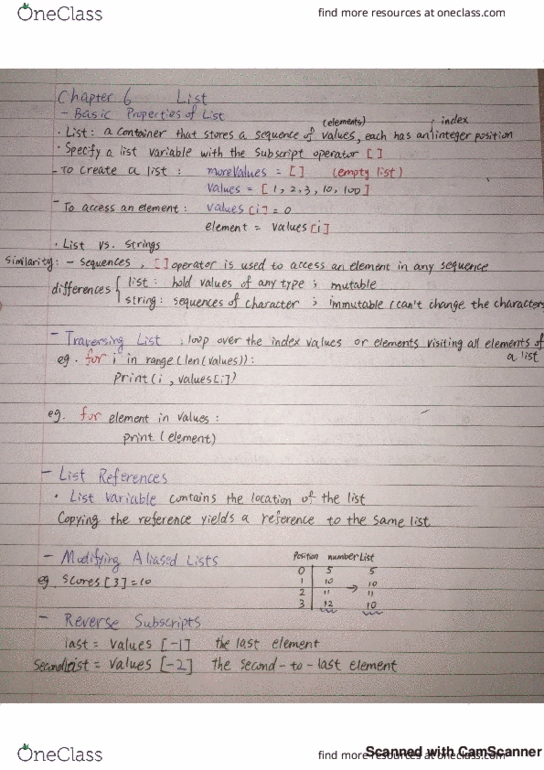 OneClass
find more resources at oneclass.com
Chapter 6 List
- Basic Properties of List
(elements) index
· List : a container that stores a sequence of values, each has an integer position
· Specify a list variable with the subscript operator [ ]
- To create a list : moreValues = [ ] (empty list)
Values = [ 1, 2, 3, 10, 100 ]
- To access an element : values [i] = 0
element = values [i]
· List vs. Strings
Similarity : - sequences , [ ] operator is used to access an element in any sequence
differences { list : hold values of any type ; mutable
string : sequences of character ; immutable (can't change the characters
- Traversing List : loop over the index values or elements visiting all elements of a list
eg. for i in range (len (values)) :
print (i , values [i])
eg. for element in values :
print (element)
- List References
· List variable contains the location of the list
Copying the reference yields a reference to the same list
- Modifying Aliased Lists
eg scores [3] = 10
Position number List
0 5 5
1 10 → 10
2 11 11
3 12 10
- Reverse Subscripts
last = values [-1] the last element
= values [-2] the second - to - last element
OneClass
find more resources at oneclass.com
Scanned with CamScanner